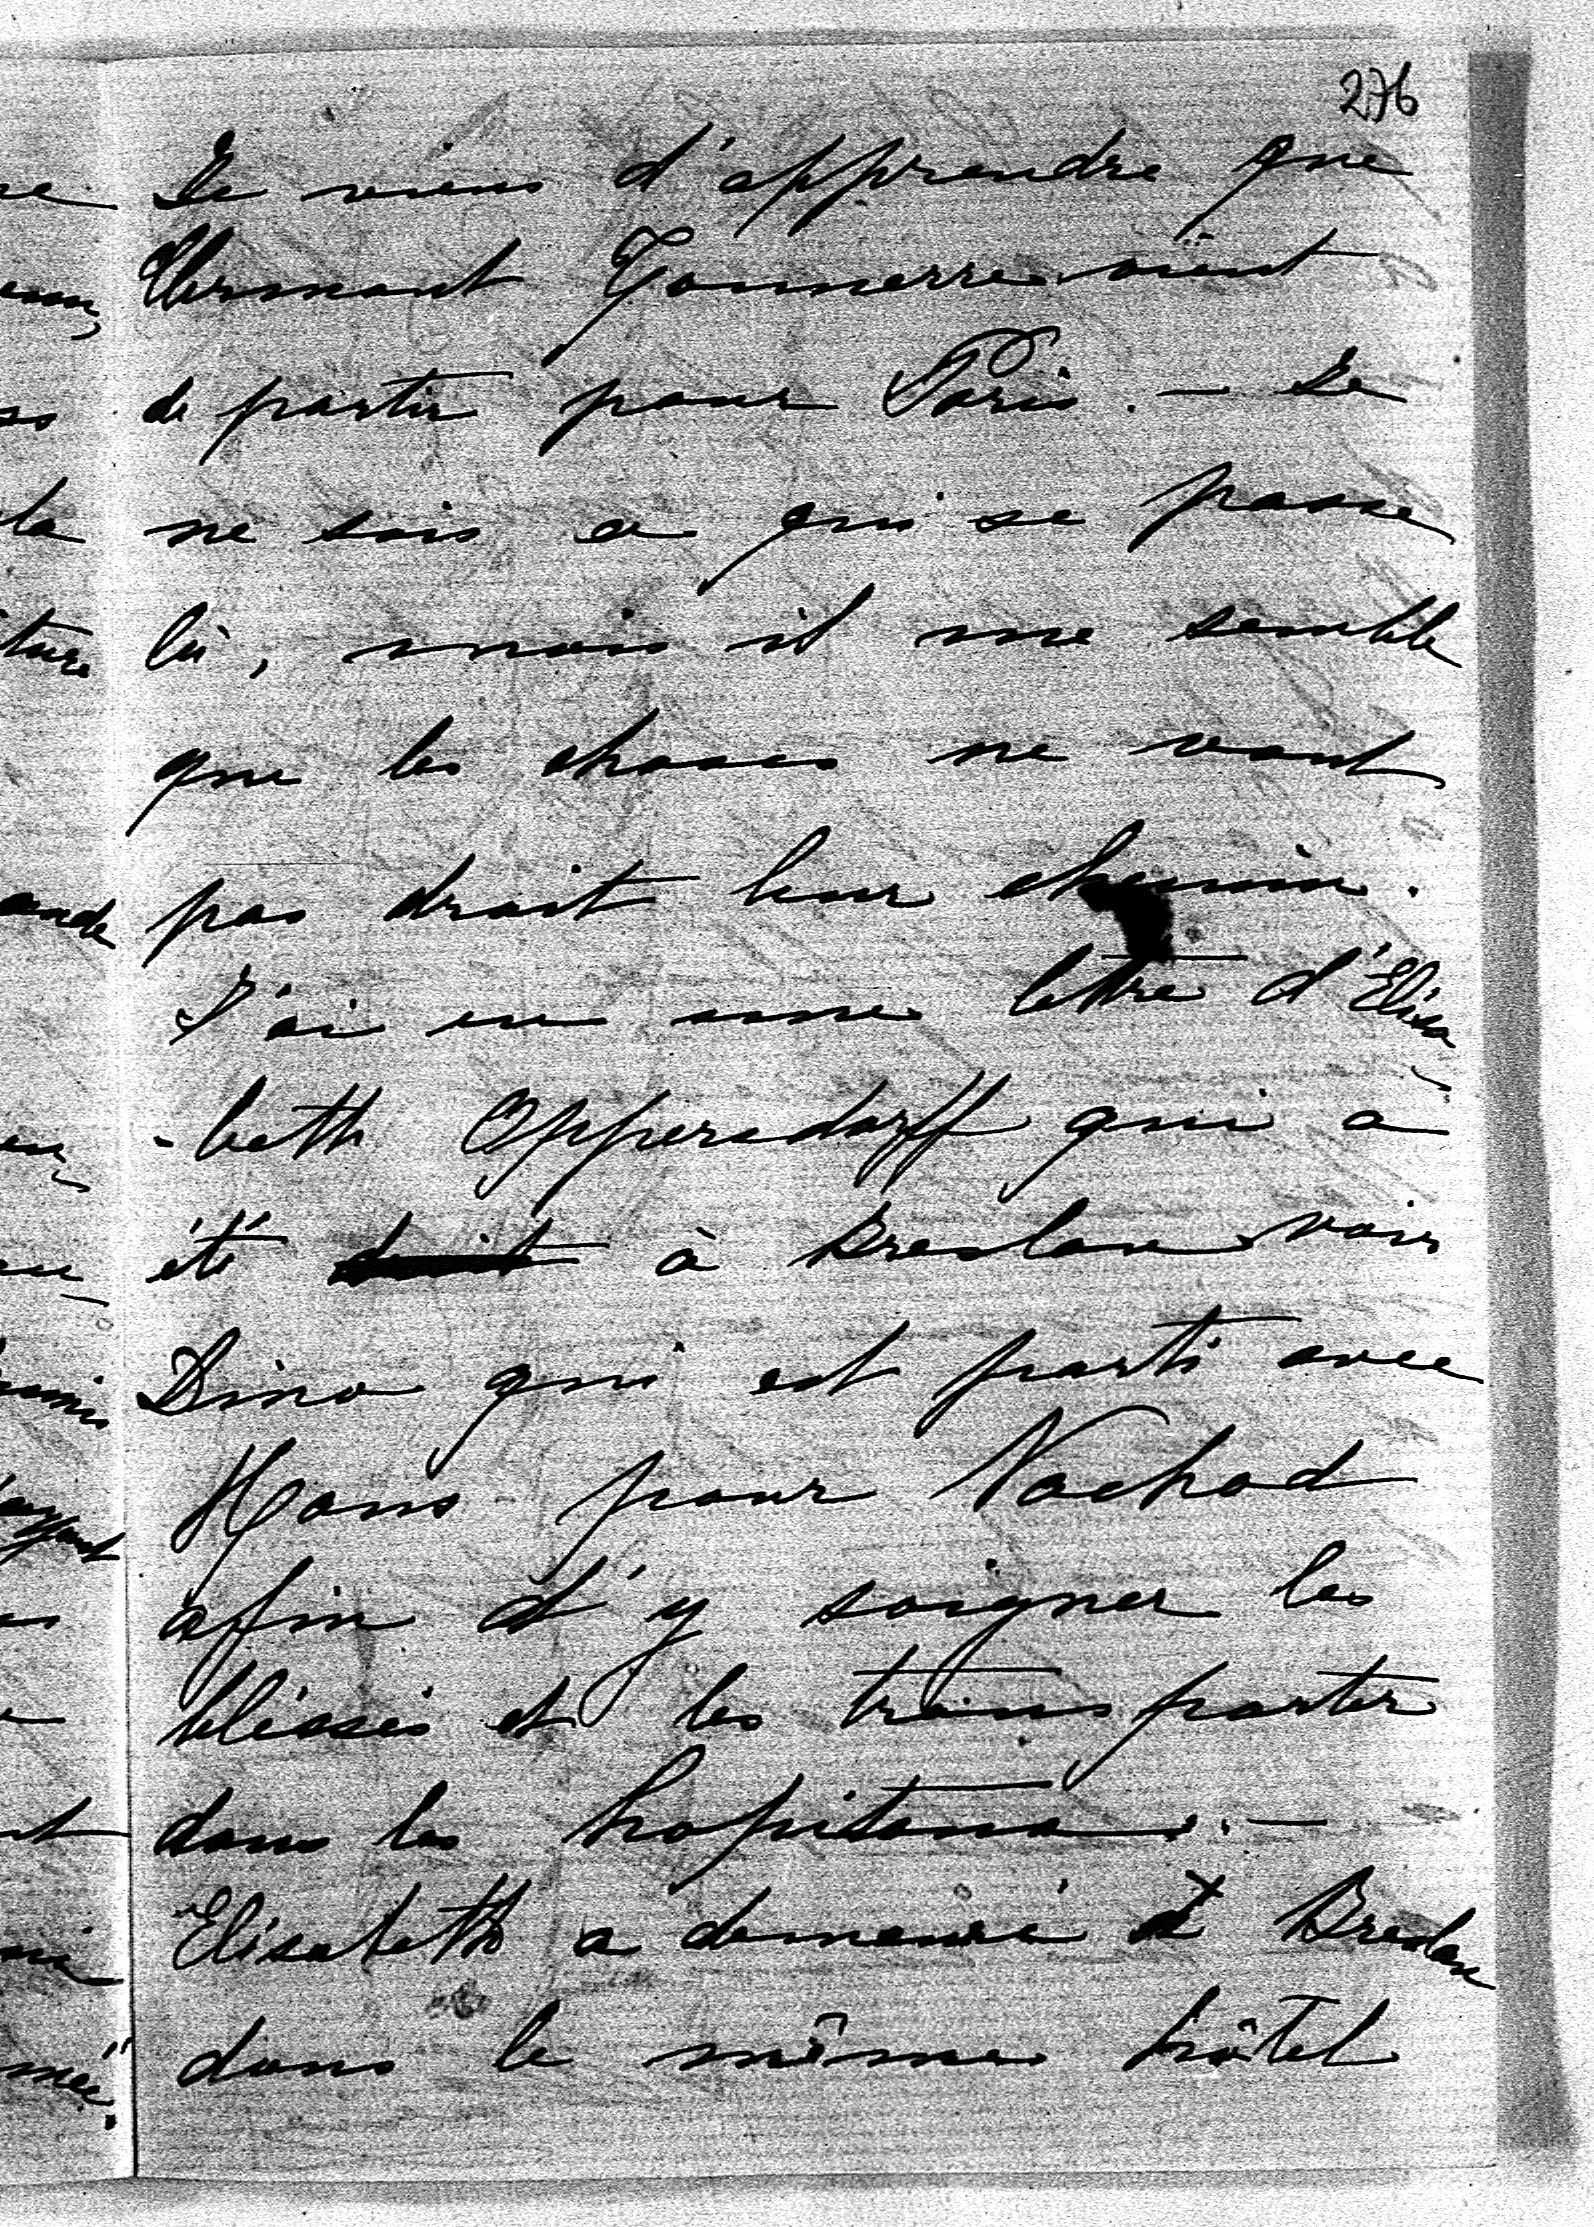 276
Je viens d'apprendre que
Clermont Tonnerre vient
de partir pour Paris. — Je
ne sais ce qui se passe
là, mais il me semble
que les choses ne vont
pas droit leur chemin.
J'ai eu une lettre d'Elisa
-beth Oppersdorff qui a
été à Breslau voir
Dino qui est parti avec
Hans pour Nachod
afin d'y soigner les
blessés et les transporter
dans les hopitaux. —
Elisabeth a demeuré à Breslau
dans le même hôtel